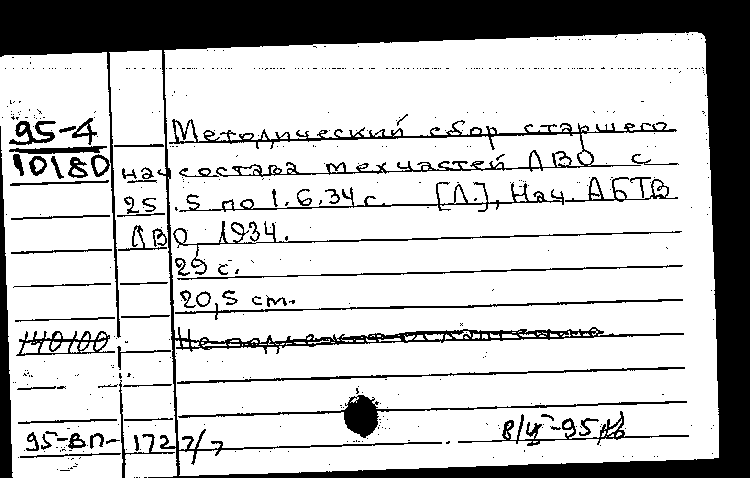 95-4
10180
Методический сбор старшего
начсостава мехчастей ЛВО с
25.5 по 1.6.34 г. [Л.], Нач. АБТВ
ЛВО, 1934.
29 с.
20,5 cm.
140100
Не подлежит оглашению
95-ВП-1727/7